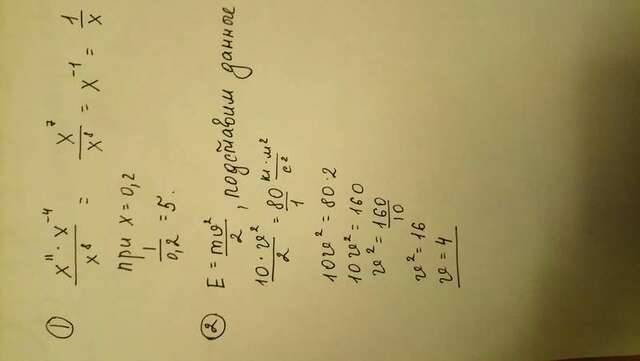 ① x¹¹ · x⁻⁴ / x⁸ = x⁷ / x⁸ = x⁻¹ = 1/x
при x = 0,2
1/0,2 = 5.
② E = mv²/2, подставим данные
10 · v²/2 = 80/1 кг · м²/с²
10v² = 80 · 2
10v² = 160
v² = 160/10
v² = 16
v = 4